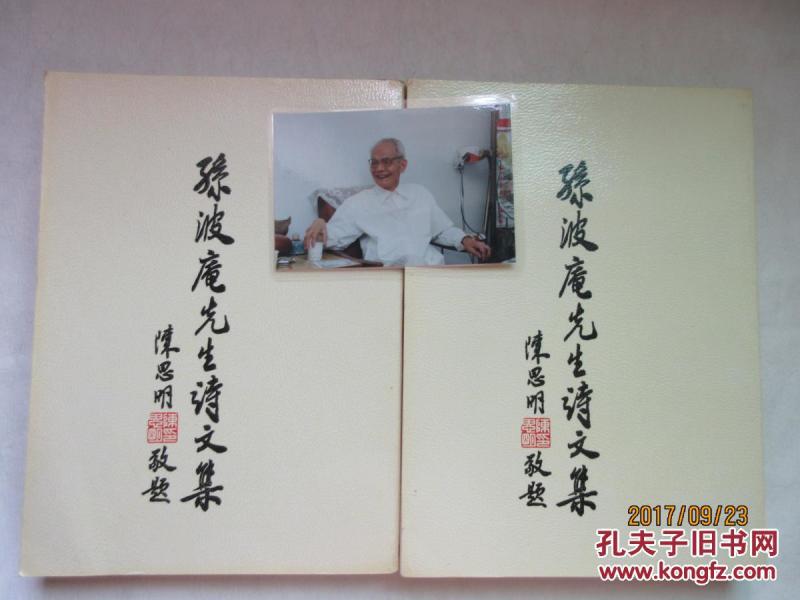 孫波庵先生詩文集
陳思明
陳思明印
敬題
孫波庵先生詩文集
陳思明
陳思明印
敬題
2017/09/23
孔夫子旧书网
www.kongfz.com